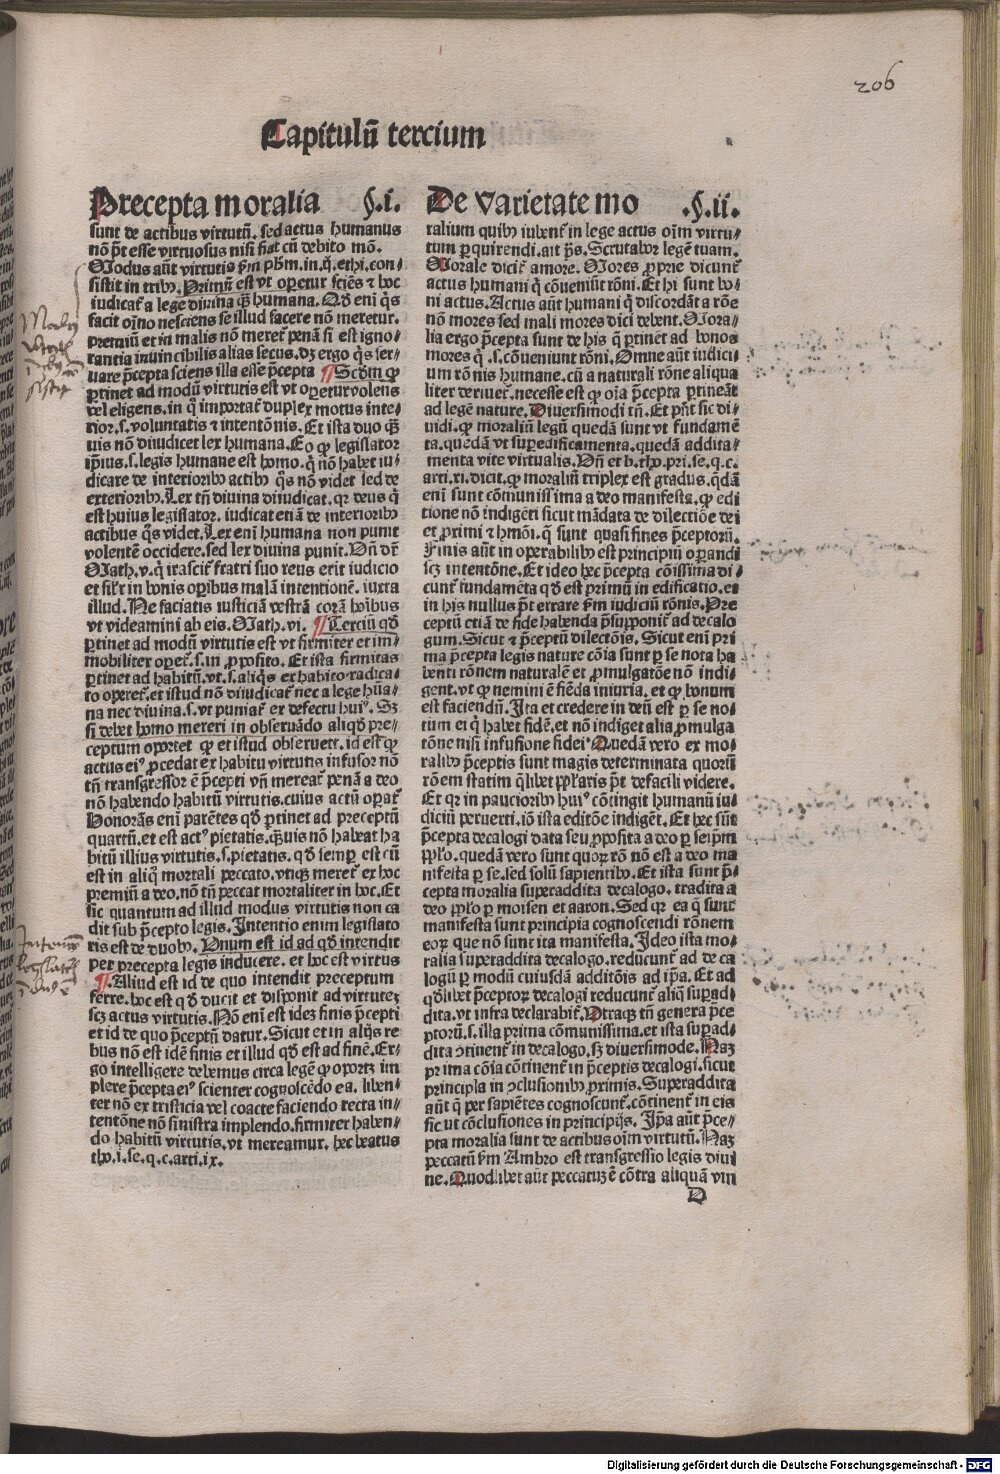 206
Capitulū tercium
Precepta moralia §.i.
sunt de actibus virtutū. sed actus humanus
nō p̄t esse virtuosus nisi fiat cū debito mō.
Modus aūt virtutis ẜm pħm. in. q̄. ethi. con⸗
sistit in tribꝰ. Primū est vt operetur sciēs ⁊ hoc
iudicat᷑ a lege diuina q̄ꝫ humana. Qd̄ eni q̄s
facit oīno nesciens se illud facere nō meretur.
premiū et in malis nō meret᷑ penā si est igno⸗
rantia inuincibilis alias secus. dꝫ ergo q̄s ser⸗
uare p̄cepta sciens illa esse p̄cepta ¶ Scd̄m ꝙ
ꝑtinet ad modū virtutis est vt operetur volens
vel eligens. in q̄ importat᷑ duplex motus inte⸗
rior. s. voluntatis ⁊ intentōnis. Et ista duo q̄ꝫ
uis nō diiudicet lex humana. Eo ꝙ legislator
ip̄ius. s. legis humane est homo. q̄ nō habet iu⸗
dicare de interioribꝰ actibꝰ q̄s nō videt sed de
exterioribꝰ. Lex tn̄ diuina diiudicat. qꝛ deus q̄
est huius legislator. iudicat etiā de interioribꝰ
actibus q̄s videt. Lex eni humana non punit
volentē occidere. sed lex diuina punit. Vn̄ dr̄
Math. v. q̄ irascit᷑ fratri suo reus erit iudicio
et sil̄r in bonis operibus malā intentionē. iuxta
illud. Ne faciatis iusticiā vestrā corā hoībus
vt videamini ab eis. Math. vi. ¶ Terciū qd̄
ꝑtinet ad modū virtutis est vt firmiter et im⸗
mobiliter operet᷑. s. in ꝓposito. Et ista firmitas
ꝑtinet ad habitū. vt. s. aliq̄s ex habito radica⸗
to operet᷑. et istud nō diiudicat᷑ nec a lege hūa⸗
na nec diuina. s. vt puniat᷑ ex defectu huiꝰ. Sꝫ
si debet homo mereri in obseruādo aliqd̄ pre⸗
ceptum oportet ꝙ et istud obseruet. id est ꝙ
actus eiꝰ ꝓcedat ex habitu virtutis infusor nō
tn̄ transgressor ē p̄cepti vn̄ mereat᷑ penā a deo
nō habendo habitū virtutis. cuius actū operat᷑
Honorās eni parētes qd̄ ꝑtinet ad preceptū
quartū. et est actꝰ pietatis. q̄ꝫuis nō habeat ha
bitū illius virtutis. s. pietatis. qd̄ semꝑ est cū
est in aliq̄ mortali peccato. vtiqꝫ meret᷑ ex hoc
premiū a deo. nō tn̄ peccat mortaliter in hoc. Et
sic quantum ad illud modus virtutis non ca
dit sub p̄cepto legis. Intentio enim legislato
ris est de duobꝰ. Vnum est id ad qd̄ intendit
per precepta legis inducere. et hoc est virtus
¶ Aliud est id de quo intendit preceptum
ferre. hoc est qd̄ ducit et disponit ad virtutez
scꝫ actus virtutis. Nō eni est idez finis p̄cepti
et id de quo p̄ceptū datur. Sicut et in alijs re
bus nō est idē finis et illud qd̄ est ad finē. Er⸗
go intelligere debemus circa legē ꝙ oportꝫ im
plere p̄cepta eiꝰ scienter cognoscēdo ea. liben⸗
ter nō ex tristicia vel coacte faciendo recta in⸗
tentōne nō sinistra implendo. firmiter haben⸗
do habitū virtutis. vt mereamur. hec beatus
tho. i. se. q. c. arti. ix.
De varietate mo §.ii.
ralium quibꝰ iubent᷑ in lege actus oīm virtu⸗
tum ꝑquirendi. ait p̄s. Scrutabor legē tuam.
Morale dicit᷑ a more. Mores ꝓprie dicunt᷑
actus humani q̄ cōueniūt rōni. Et hi sunt bo⸗
ni actus. Actus aūt humani q̄ discordāt a rōe
nō mores sed mali mores dici debent. Mora⸗
lia ergo p̄cepta sunt de his q̄ ꝑtinēt ad bonos
mores q̄. s. cōueniunt rōni. Omne aūt iudici⸗
um rōnis humane. cū a naturali rōne aliqua
liter deriuet᷑. necesse est ꝙ oīa p̄cepta ꝑtineāt
ad legē nature. Diuersimodi tn̄. Et pn̄t sic di⸗
uidi. ꝙ moraliū legū quedā sunt vt fundamē
ta. quedā vt suꝑedificamenta. quedā addita⸗
menta vite virtualis. Vn̄ et b. tho. pri. se. q. c.
arti. xi. dicit. ꝙ moraliū triplex est gradus. q̄dā
eni sunt cōmunissima a deo manifesta. ꝙ edi
tione nō indigēt sicut mādata de dilectiōe dei
et proximi ⁊ hmōi. q̄ sunt quasi fines p̄ceptorū.
Finis aūt in operabilibꝰ est principiū operandi
scꝫ intentōne. Et ideo hec p̄cepta cōissima di⸗
cunt᷑ fundamēta qd̄ est primū in edificatio. et
in his nullus p̄t errare ẜm iudiciū rōnis. Pre
ceptū etiā de fide habenda p̄supponit᷑ ad decalo
gum. Sicut ⁊ p̄ceptū dilectōis. Sicut eni pri
ma p̄cepta legis nature cōia sunt ꝑ se nota ha
benti rōnem naturalē et ꝓmulgatōe nō indi⸗
gent. vt ꝙ nemini ē fiēda iniuria. et ꝙ bonum
est faciendū. Ita et credere in deū est ꝑ se no⸗
tum ei q̄ habet fidē. et nō indiget alia ꝓmulga
tōne nisi infusione fidei. Quedā vero ex mo⸗
ralibꝰ p̄ceptis sunt magis determinata quorū
rōem statim q̄libet ppl̄aris p̄t defacili videre.
Et qꝛ in paucioribꝰ huiꝰ cōtingit humanū iu⸗
diciū peruerti. iō ista editōe indigēt. Et hec sūt
p̄cepta decalogi data seu ꝓposita a deo ꝑ seip̄m
ppl̄o. quedā vero sunt quoꝝ rō nō est a deo ma
nifesta ꝑ se. sed solū sapientibꝰ. Et ista sunt p̄⸗
cepta moralia superaddita decalogo. tradita a
deo ppl̄o ꝑ moisen et aaron. Sed qꝛ ea q̄ sunt
manifesta sunt principia cognoscendi rōnem
eoꝝ que nō sunt ita manifesta. Ideo ista mo⸗
ralia superaddita decalogo. reducunt᷑ ad deca
logū ꝑ modū cuiusdā additōis ad ip̄a. Et ad
qd̄libet p̄ceptoꝝ decalogi reducunt᷑ aliq̄ suꝑad⸗
dita. vt infra declarabit᷑. Vtraqꝫ tn̄ genera p̄ce
ptorū. s. illa prima cōmunissima. et ista suꝑad⸗
dita ↄtinent᷑ in decalogo. sꝫ diuersimode. Naꝫ
prima cōia cōtinent᷑ in p̄ceptis decalogi. sicut
principia in ↄclusionibꝰ primis. Superaddita
aūt q̄ per sapiētes cognoscunt᷑. cōtinent᷑ in eis
sicut cōclusiones in principijs. Ip̄a aūt p̄ce⸗
pta moralia sunt de actibus oīm virtutū. Naꝫ
peccatū ẜm Ambro est transgressio legis diui
ne. Quodlibet aūt peccatuꝫ ē cōtra aliquā vir
D
Digitalisierung gefördert durch die Deutsche Forschungsgemeinschaft - DFG